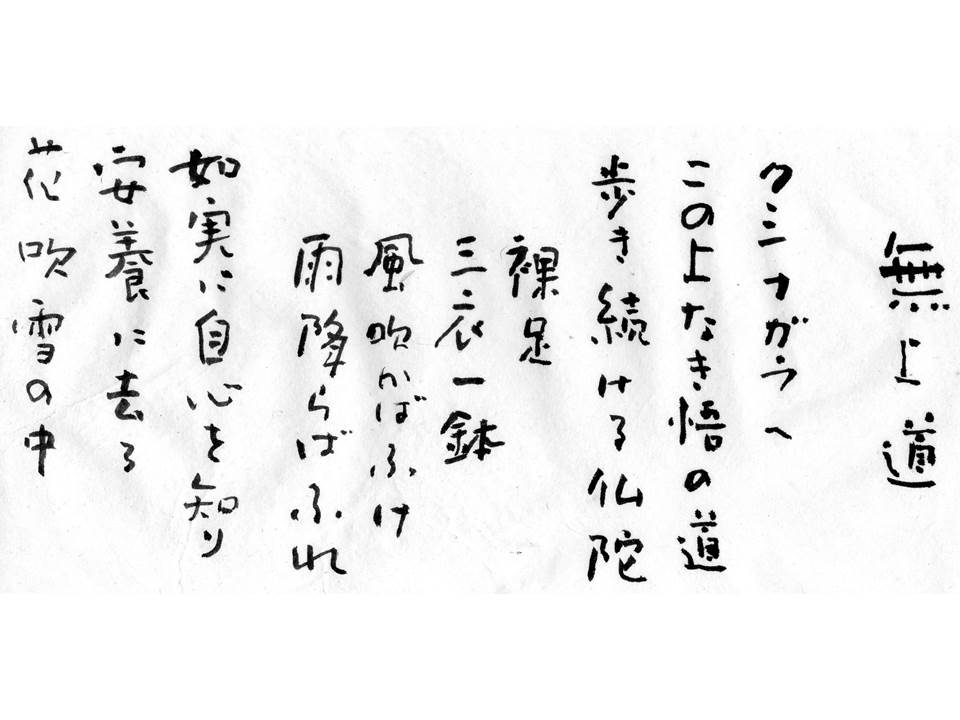 無上道
クシナガラへ
この上なき悟の道
歩き続ける仏陀
裸足
三衣一鉢
風吹かばふけ
雨降らばふれ
如実に自心を知り
安養に去る
花吹雪の中